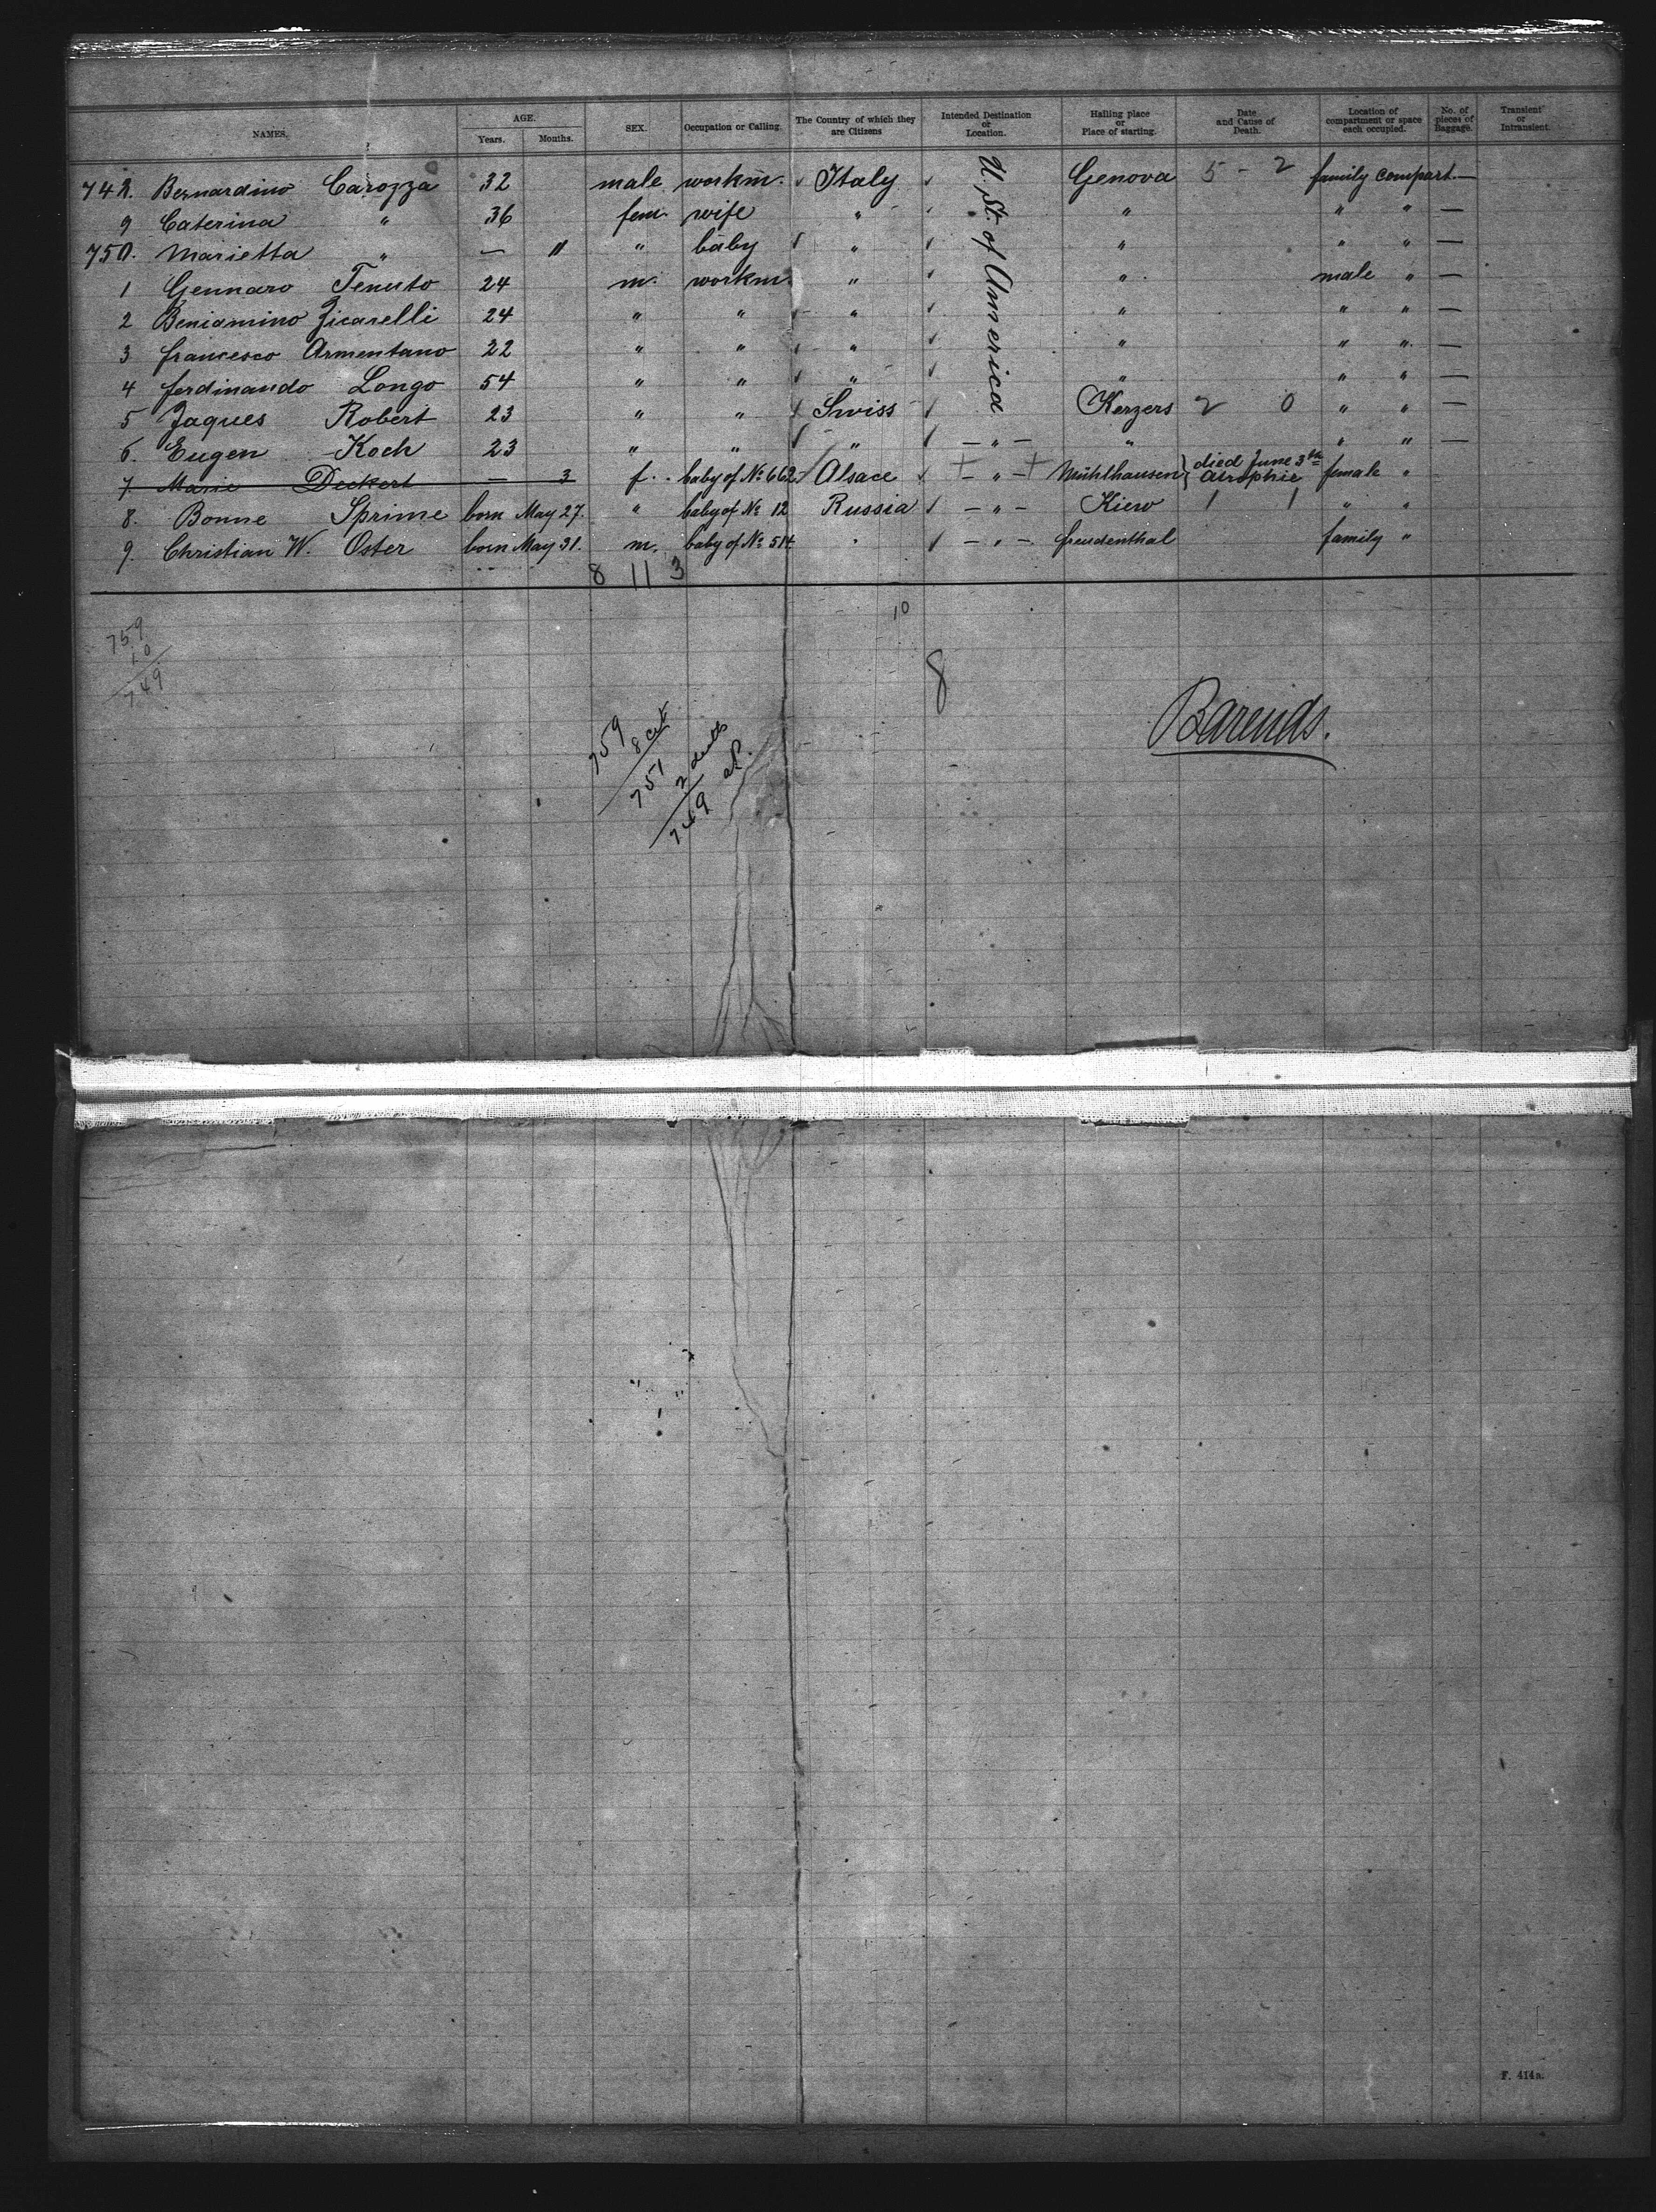 NAMES. AGE. Years. Months. SEX. Occupation or Calling. The Country of which they are Citizens Intended Destination or Location. Hailing place or Place of starting. Date and Cause of Death. Location of compartment or space each occupied. No. of pieces of Baggage. Transient or Intransient.
748. Bernardino Carozza 32 male workm. Italy U. St. of America Genova 5 - 2 family compart. —
9 Caterina " 36 fem. wife " " " " —
750. Marietta " — 11 " baby " " " " —
1 Gennaro Tenuto 24 m. workm. " " male " —
2 Beniamino Zicarelli 24 " " " " " " —
3 francesco Armentano 22 " " " " " " —
4 ferdinando Longo 54 " " " " " " —
5 Jaques Robert 23 " " Swiss Kerzers 2 0 " " —
6. Eugen Koch 23 " " " — " — " " " —
7. Marie Deckert — 3 f. baby of No 662 Alsace — " — Mühlhausen } died June 3th Atrophie female "
8. Bonne Sprime born May 27. " baby of No 12 Russia — " — Kiew 1 1 " "
9. Christian W. Oster born May 31. m. baby of No 514 " — " — freudenthal family "
8 11 3
10
759
10
749
8
759
8 cit
751
2 deaths
749 al.
Barends.
F. 414a.